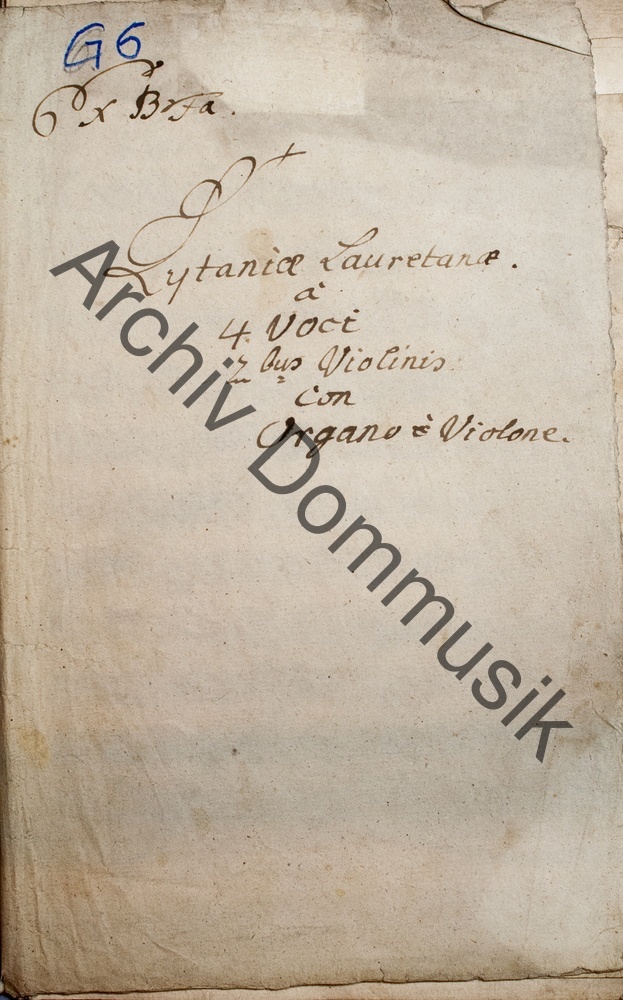 G 6
Lytaniæ Lauretanæ.
à
4. Voci
2bus Violinis
con
Organo è Violone.
Archiv Dommusik